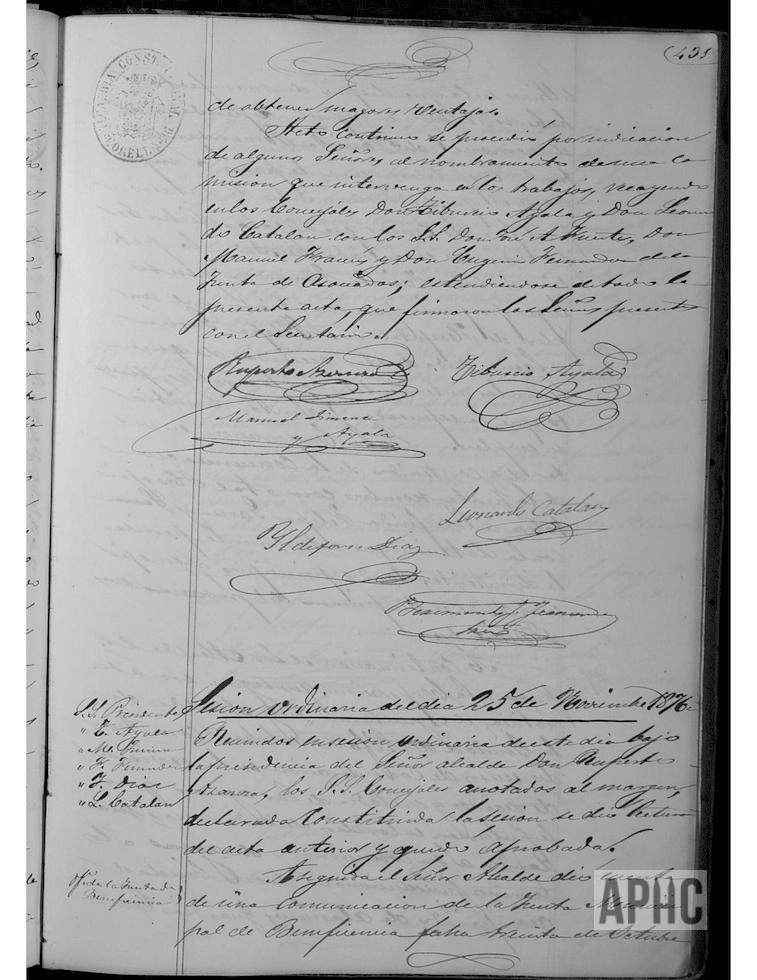 431
ALCALDIA CONST
de obtener mayores ventajas.
Acto continuo se procedió por indicacion
de algunos Señores al nombramiento de una Co
mision que intervenga en los trabajos, recayendo
en los Concejales Don Tiburcio Ayala y Don Leonar
do Catalan con los S.S. Don José A. Don
Manuel y Don Eugenio Fernandez de la
Junta de Asociados; estendiendose de todo la
presente acta, que firmaron los Señores presentes
con el Secretario.
Ruperto
Tiburcio Ayala
Manuel Jimenez
y Ayala
Leonardo Catalan
Yldefonso Diaz
Sesion ordinaria del dia 25 de Noviembre 1876
S.S. Presidente
" T. Ayala
" M.
" F. Fernandez
" Y. Dias
" L. Catalan
Reunidos en sesion ordinaria de este dia bajo
la presidencia del Señor alcalde Don Ruperto
los S.S. Concejales anotados al margen,
declarada Constituida la sesion se dió lectura
del acta anterior y quedó aprobada.
of.º de la Junta de
Beneficencia
A seguida el Señor Alcalde dió cuenta
de una comunicacion de la Junta Munici
pal de Beneficencia fecha treinta de Octubre
APHC